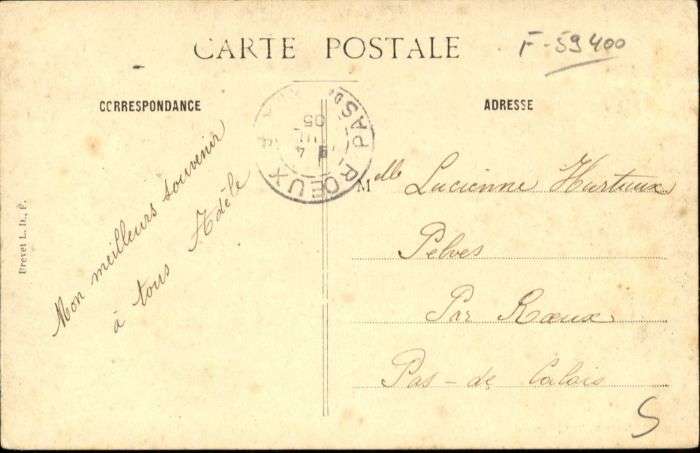 CARTE POSTALE
F-59400
CORRESPONDANCE
ADRESSE
Mon meilleurs souvenir
à tous Adèle
Brevet L. D., F.
ROEUX
PAS-D
4
05
Melle Lucienne Hurtrux
Pelves
Par Rœux
Pas-de Calais
S